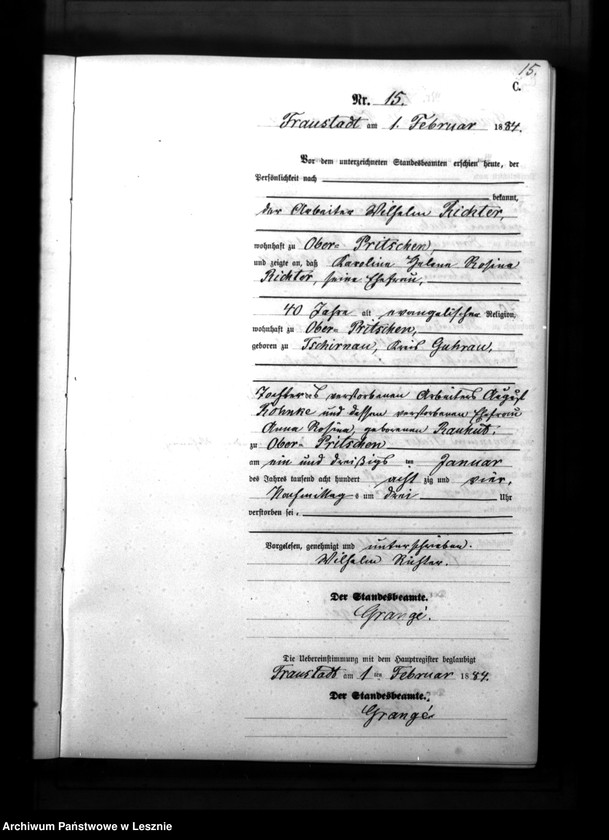 15.
C.
Nr. 15.
Fraustadt am 1. Februar 1884.
Vor dem unterzeichneten Standesbeamten erschien heute, der
Persönlichkeit nach
bekannt,
der Arbeiter Wilhelm Richter,
wohnhaft zu Ober- Pritschen,
und zeigte an, daß Karoline Helena Rosina
Richter, seine Ehefrau,
40 Jahre alt evangelischer Religion,
wohnhaft zu Ober- Pritschen,
geboren zu Tschirnau, Kreis Guhrau,
Tochter des verstorbenen Arbeiters August
Kohnke und dessen verstorbenen Ehefrau
Anna Rosina, geborenen
zu Ober- Pritschen
am ein und dreißigs ten Januar
des Jahres tausend acht hundert acht zig und vier,
Nachmittag s um drei Uhr
verstorben sei.
Vorgelesen, genehmigt und unterschrieben.
Wilhelm Richter.
Der Standesbeamte.
Grangé.
Die Uebereinstimmung mit dem Hauptregister beglaubigt
Fraustadt am 1 ten Februar 1884.
Der Standesbeamte.
Grangé
Archiwum Państwowe w Lesznie